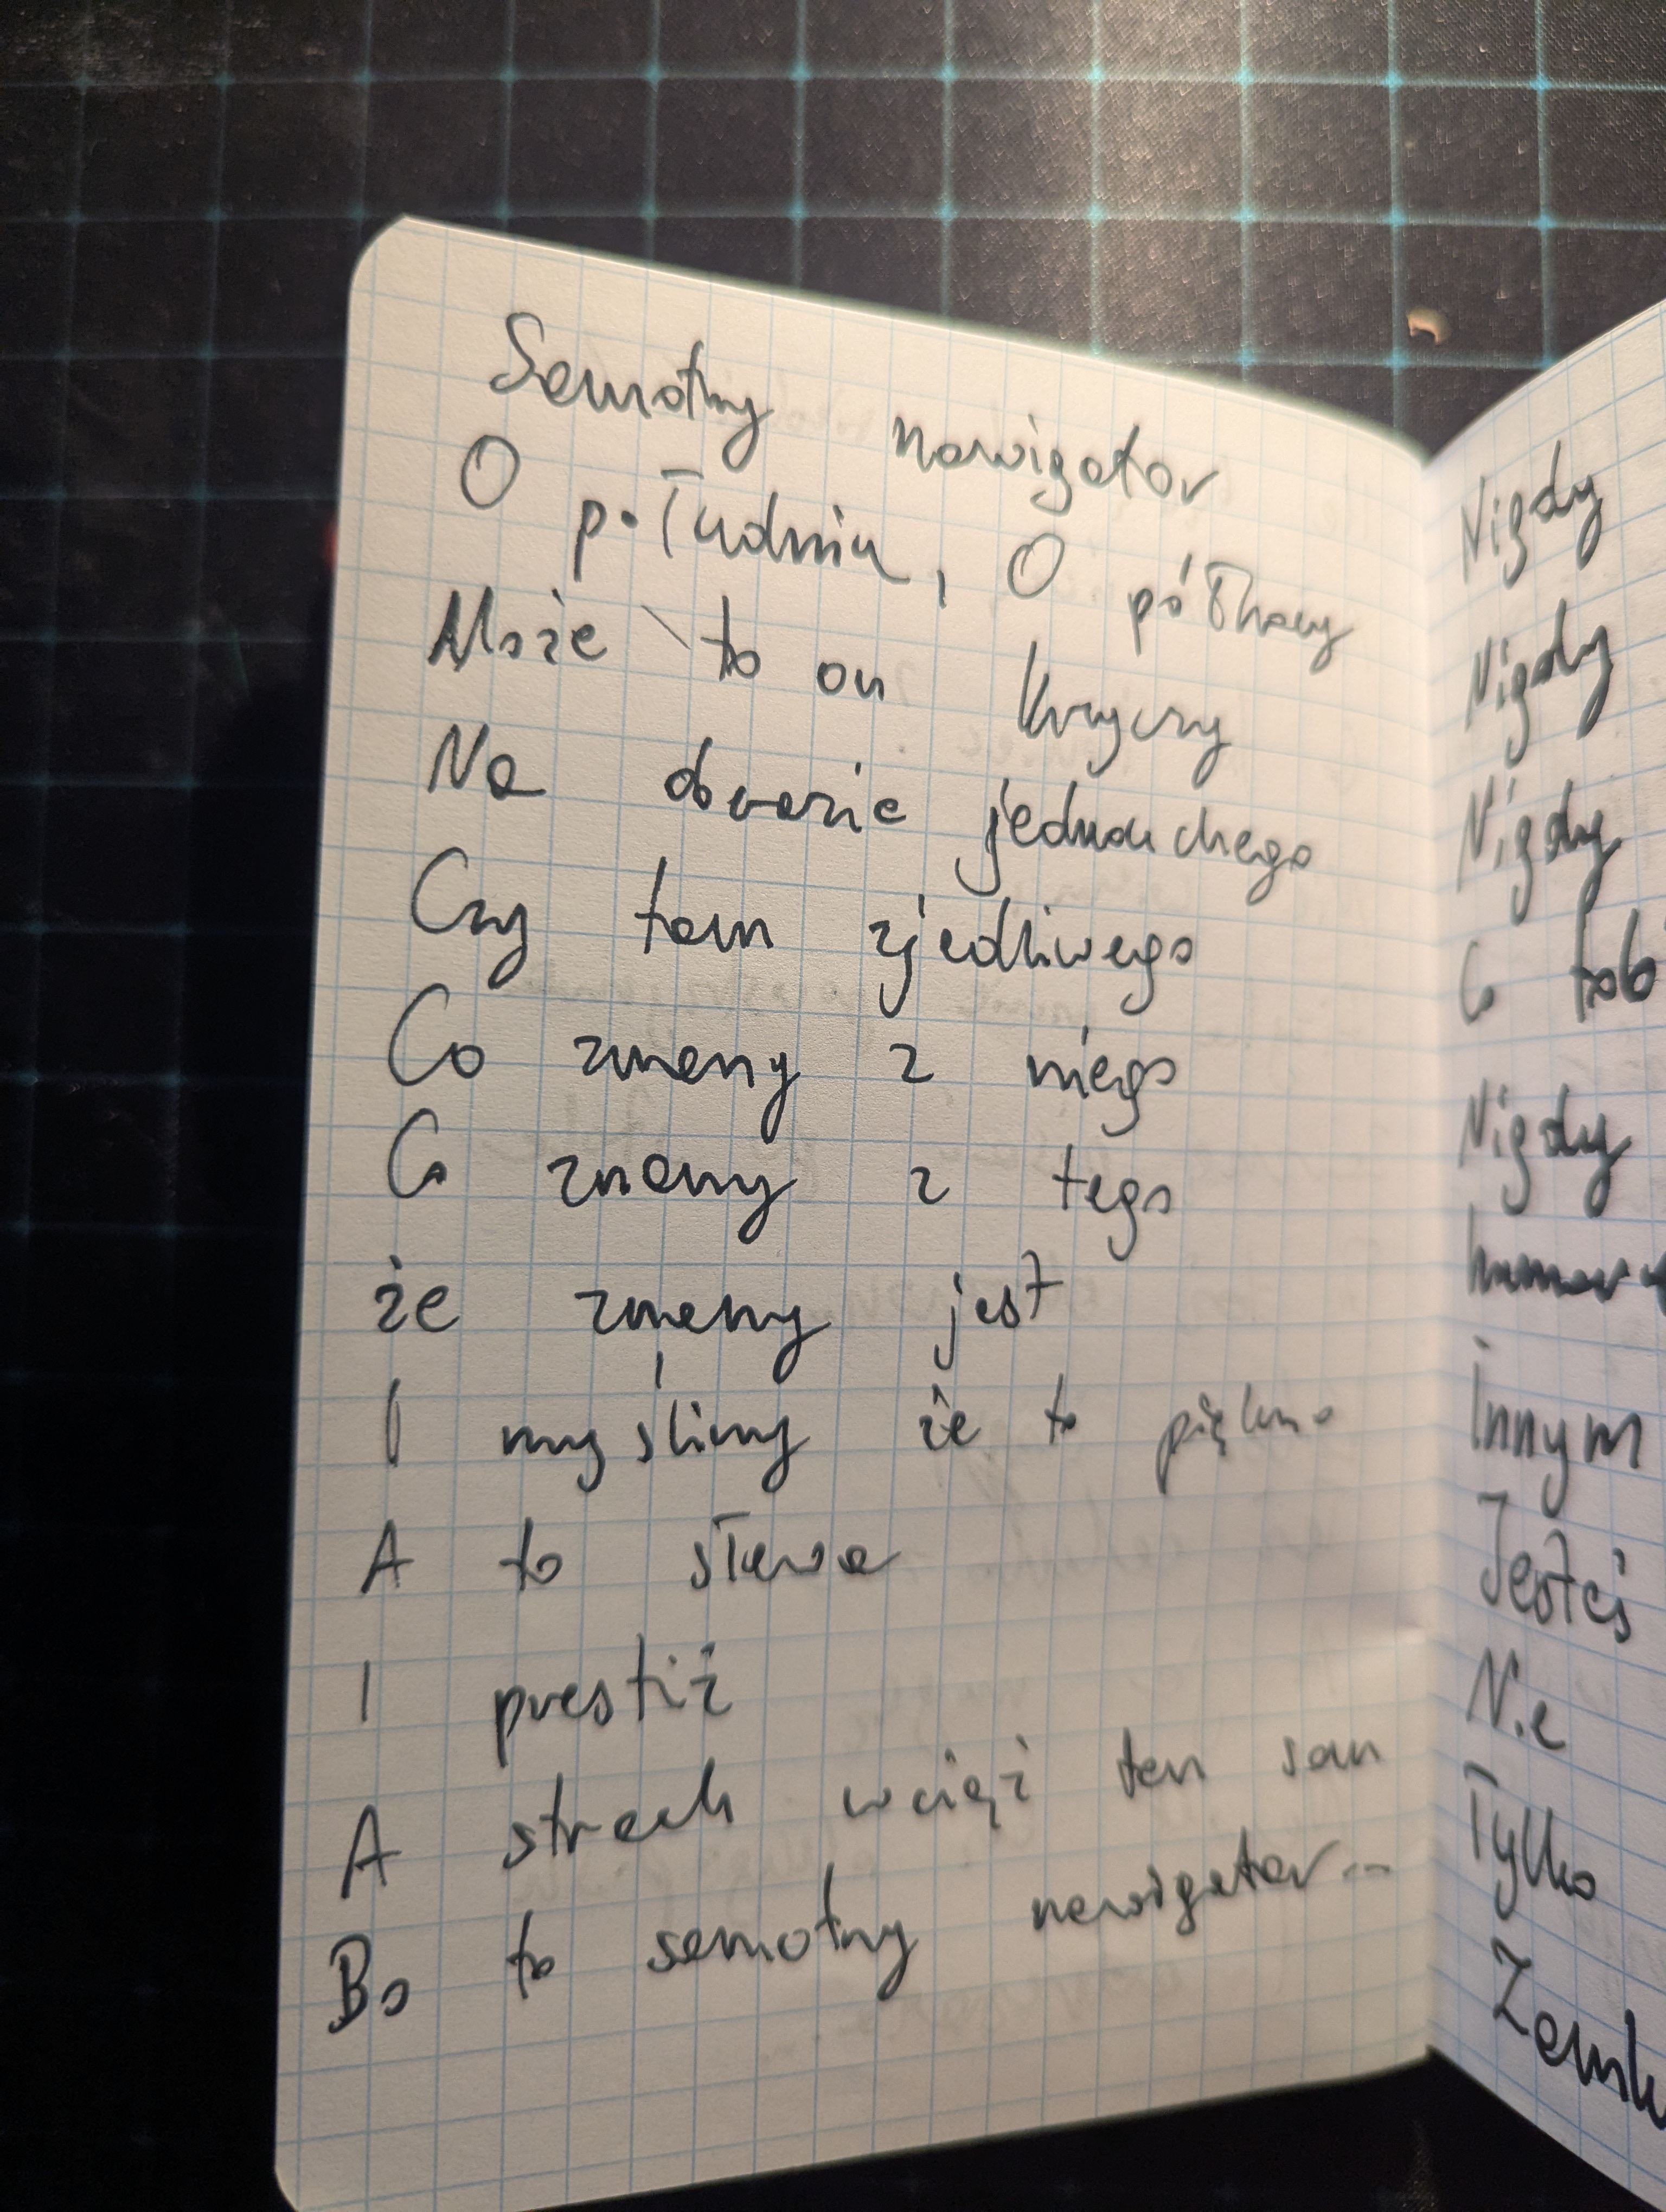 Samotny nawigator
O południu, O północy
Może to on krzyczy
Na obrazie jednouchego
Czy tam zjedliwego
Co znamy z niego
Co znamy z tego
że znamy jest
I myślimy że to piękno
A to sława
I prestiż
A strach wciąż ten sam
Bo to samotny nawigator...
Nigdy
Nigdy
Nigdy
Co
Nigdy
humor
innym
Jesteś
Nie
Tylko